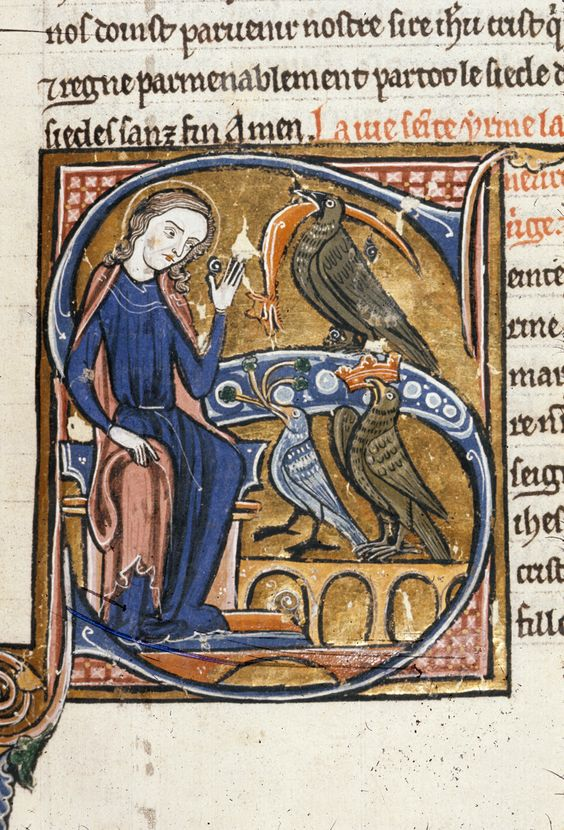 nos doinst paruenir nostre sire ih̅u crist q̅
⁊ regne parmenablement partot le siecle d
siecles sanz fin Amen. La uie seīte yrme la
einte
rme
mar
seig
ihes
crist
fille